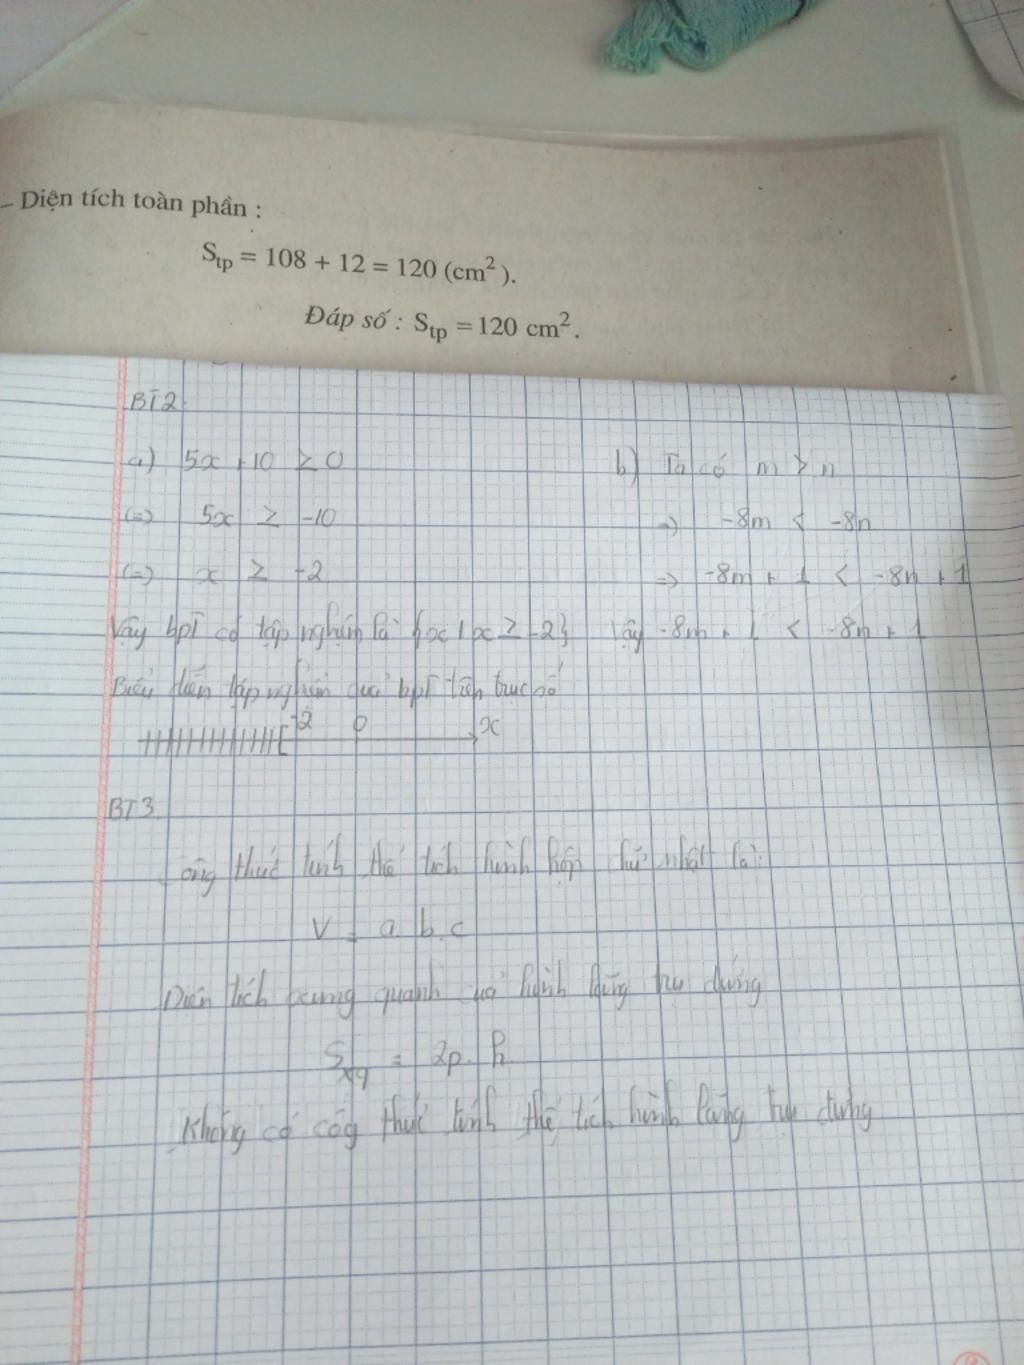 – Diện tích toàn phần :
Stp = 108 + 12 = 120 (cm²).
Đáp số : Stp = 120 cm².
BT2
a) 5x + 10 ≥ 0
(=) 5x ≥ -10
(=) x ≥ -2
Vậy bpt có tập nghiệm là {x | x ≥ -2}
Biểu diễn tập nghiệm của bpt trên trục số
-2 0 x
b) Ta có m > n
=> -8m < -8n
=> -8m + 1 < -8n + 1
Vậy -8m + 1 < -8n + 1
BT3
Công thức tính thể tích hình hộp chữ nhật là:
V = a.b.c
Diện tích xung quanh của hình lăng trụ đứng
Sxq = 2p.h
Không có côg thức tính thể tích hình lăng trụ đứng